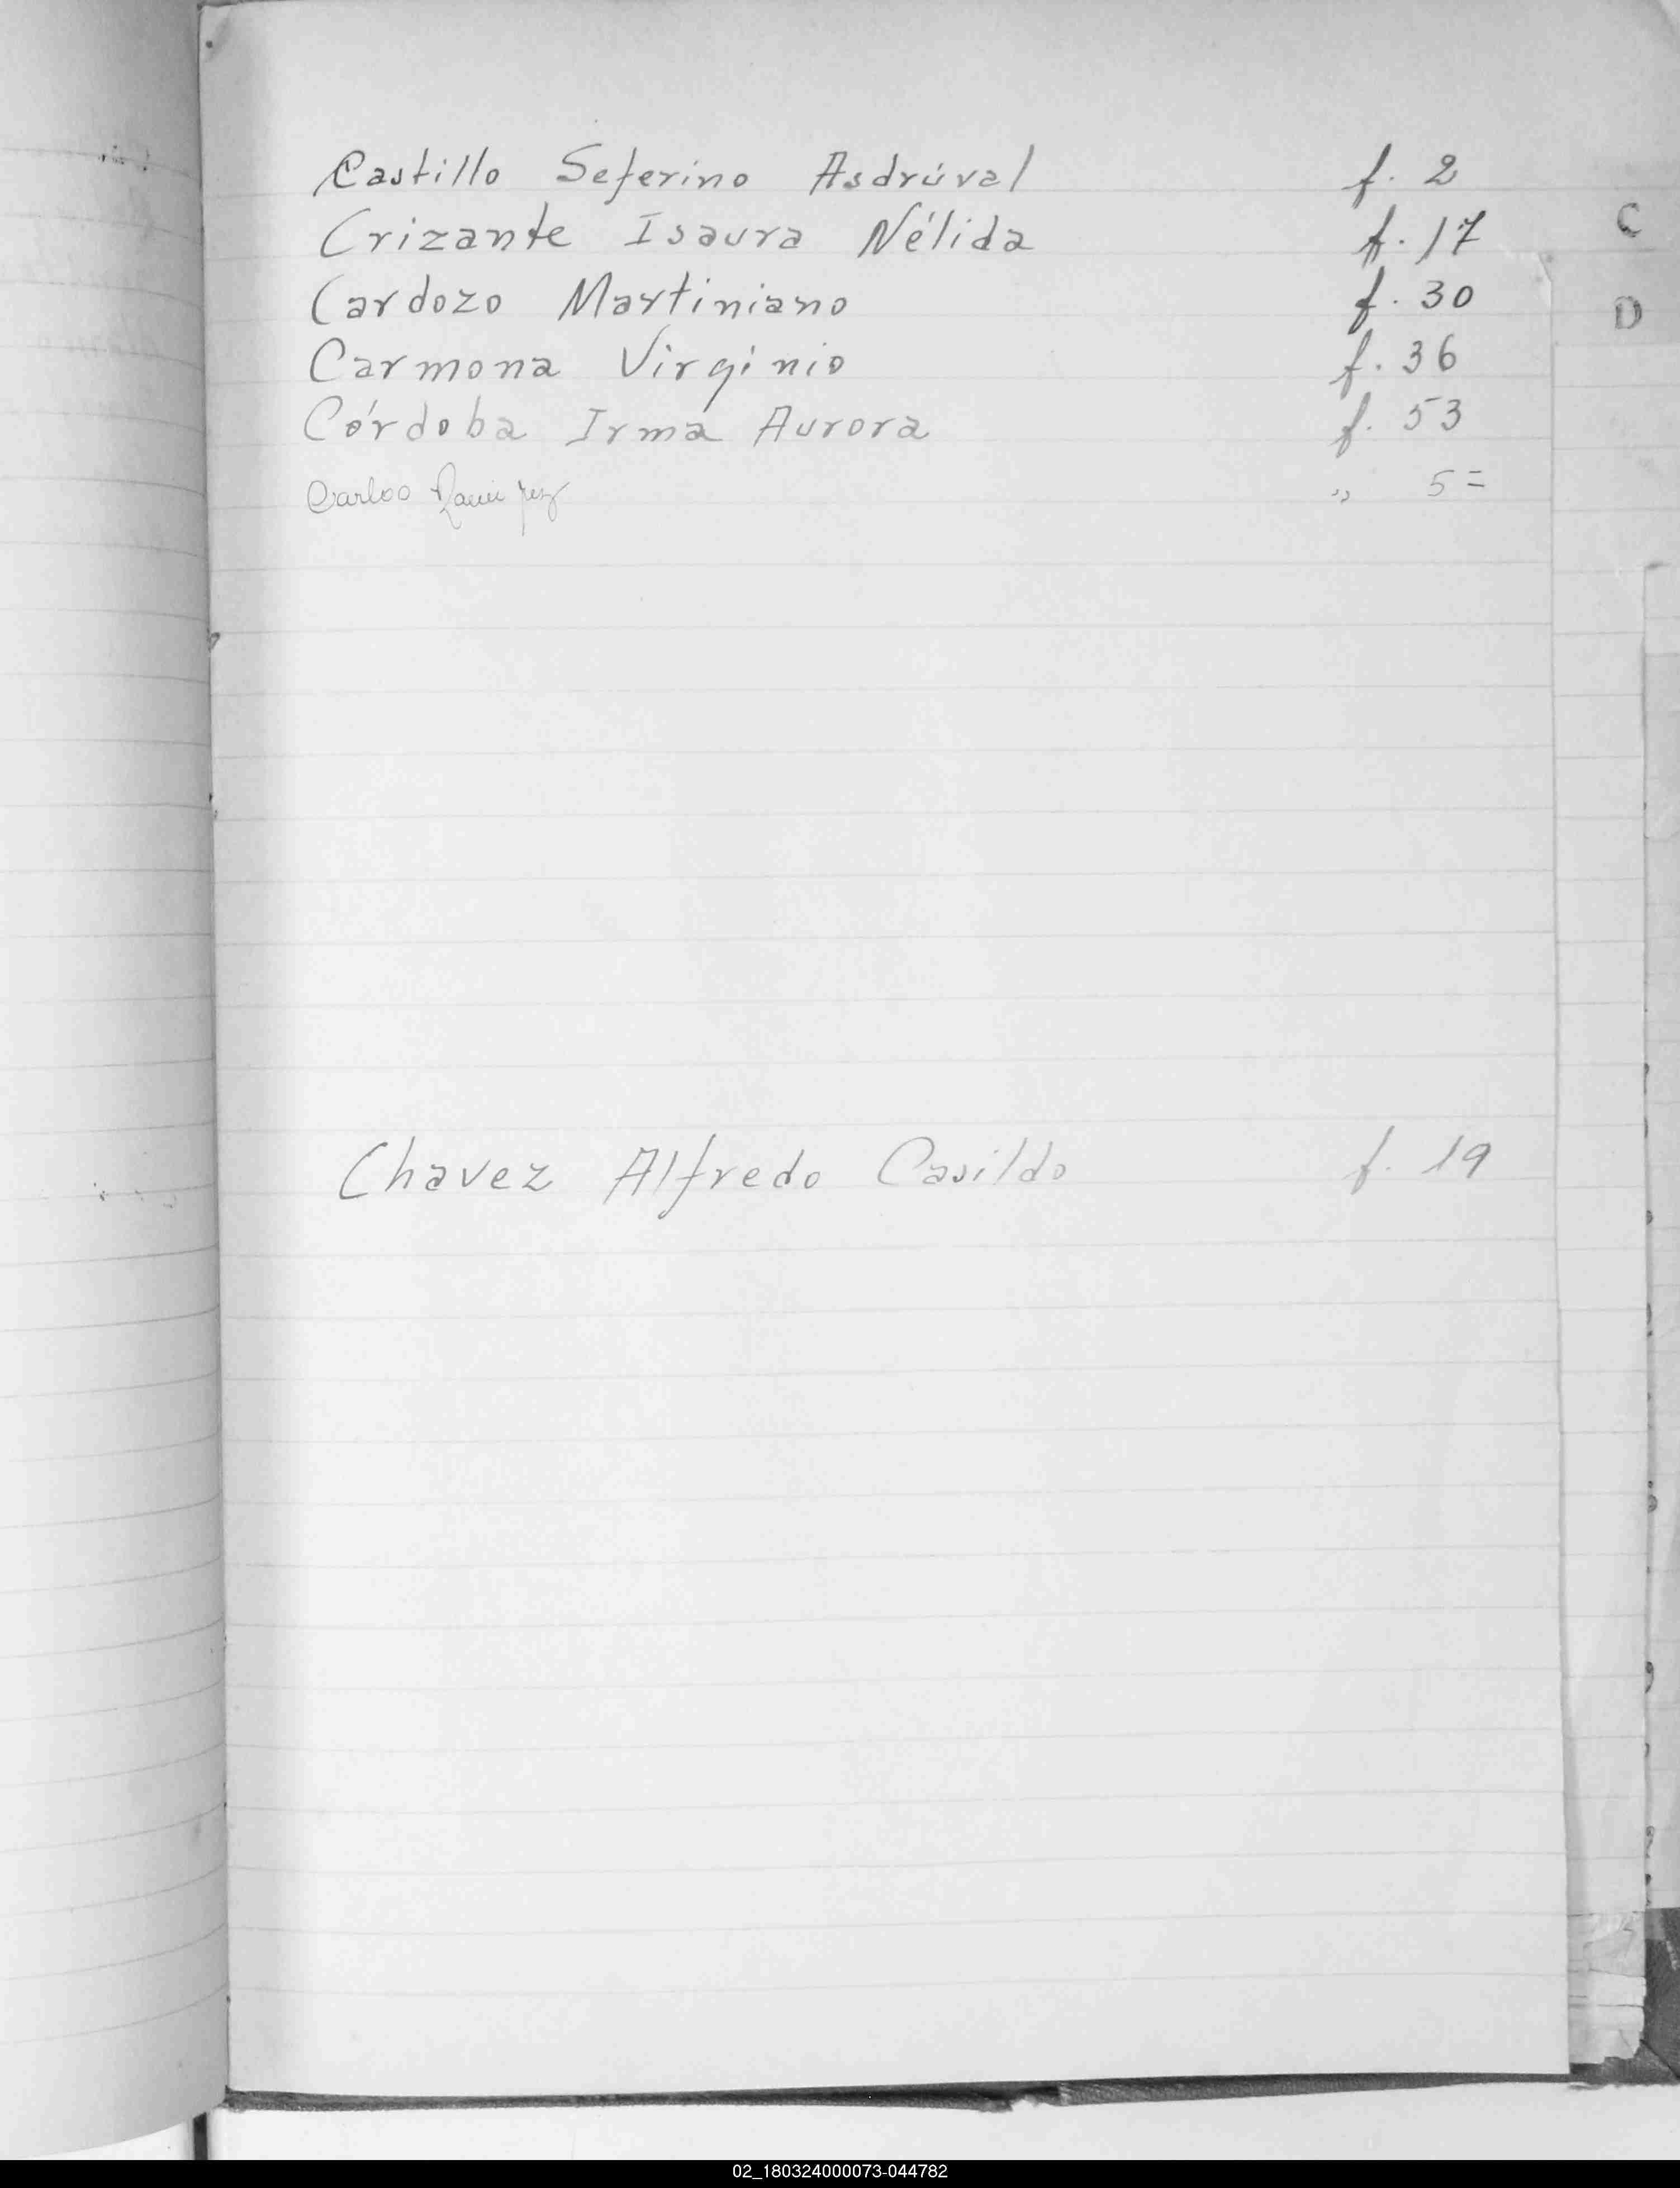 Castillo Seferino Asdrúval f. 2
Crizante Isaura Nélida f. 17
Cardozo Martiniano f. 30
Carmona Virginio f. 36
Córdoba Irma Aurora f. 53
Carlos Ramirez " 5=
Chavez Alfredo Casildo f. 19
C
D
02_180324000073-044782